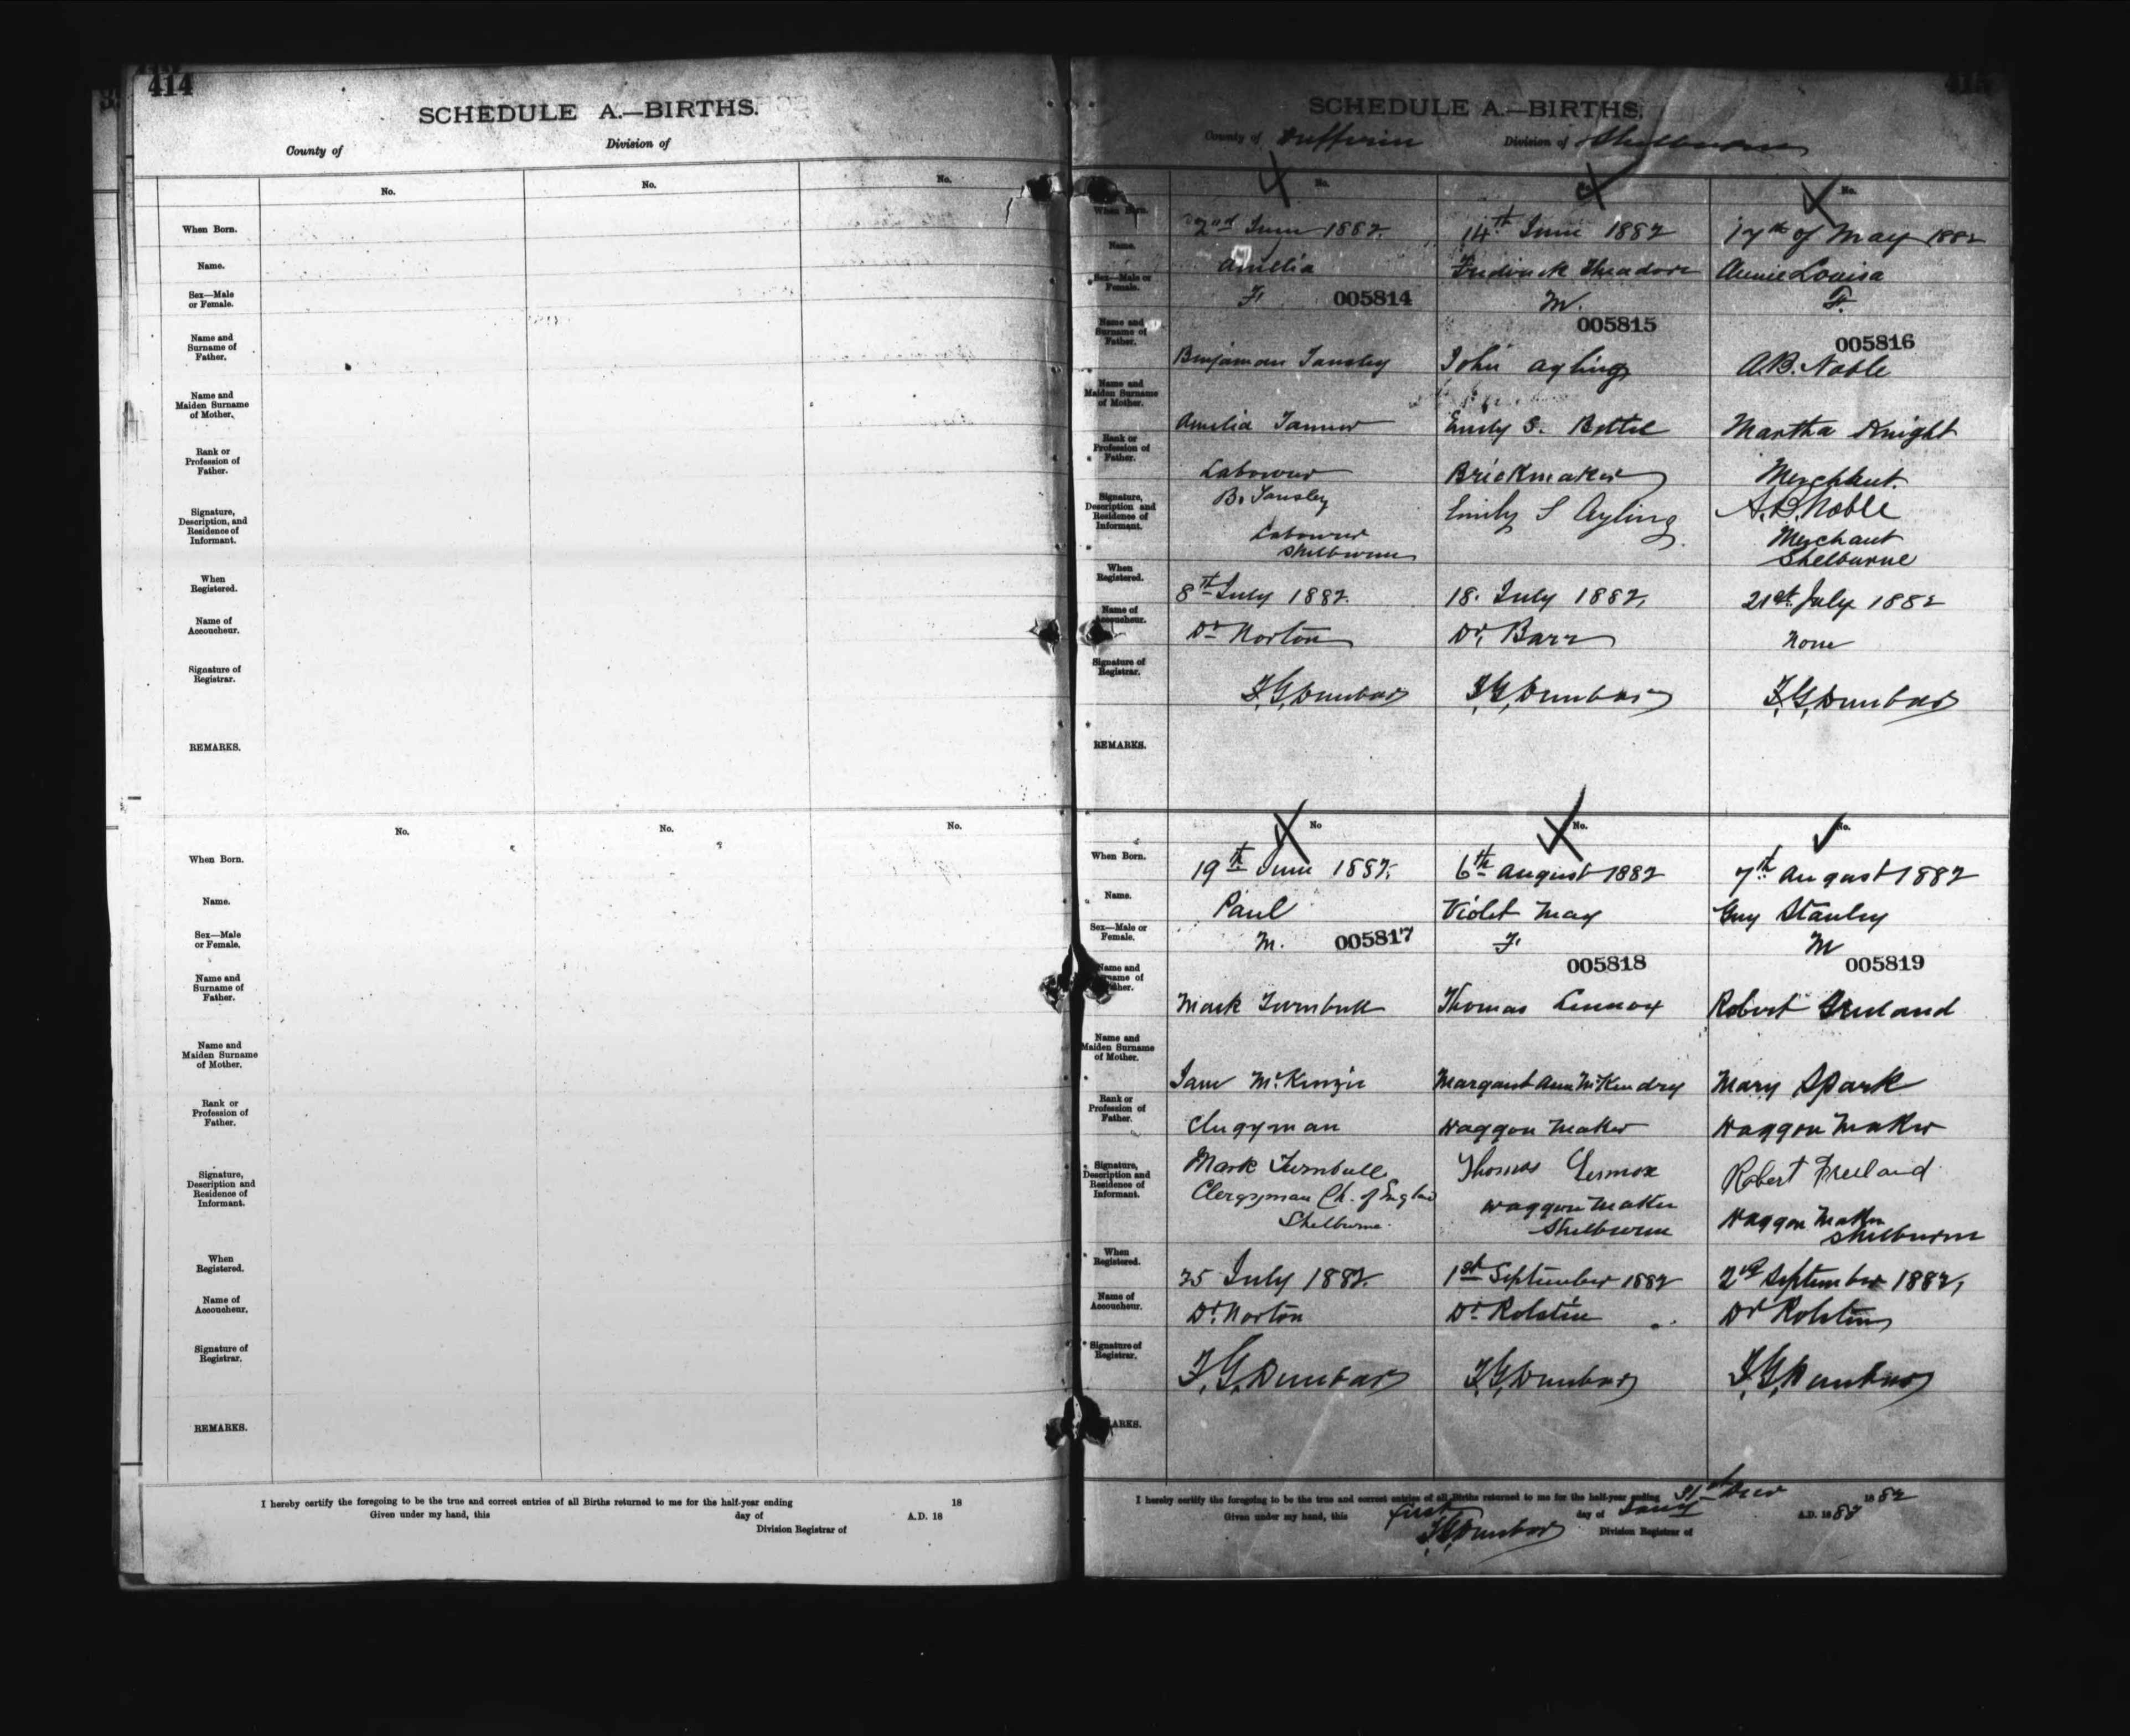 414
SCHEDULE A.—BIRTHS.
County of
Division of
No. No. No.
When Born.
Name.
Sex—Male
or Female.
Name and
Surname of
Father.
Name and
Maiden Surname
of Mother.
Rank or
Profession of
Father.
Signature,
Description, and
Residence of
Informant.
When
Registered.
Name of
Accoucheur.
Signature of
Registrar.
REMARKS.
No. No. No.
When Born.
Name.
Sex—Male
or Female.
Name and
Surname of
Father.
Name and
Maiden Surname
of Mother.
Rank or
Profession of
Father.
Signature,
Description and
Residence of
Informant.
When
Registered.
Name of
Accoucheur.
Signature of
Registrar.
REMARKS.
I hereby certify the foregoing to be the true and correct entries of all Births returned to me for the half-year ending 18
Given under my hand, this day of A.D. 18
Division Registrar of
415
SCHEDULE A.—BIRTHS.
County of Dufferin Division of Shelburne
No. No. No.
When Born. 2nd June 1882. 14th June 1882 17th of May 1882
Name. Amelia Fredirick Theadore Annie Louisa
Sex—Male or
Female. F. 005814 M. 005815 F. 005816
Name and
Surname of
Father. Benjaman Tansley John Ayling A.B. Noble
Name and
Maiden Surname
of Mother. Amelia Emily S. Martha Knight
Rank or
Profession of
Father. Labourer Brickmaker Merchant.
Signature,
Description and
Residence of
Informant. B. Tansley Emily S Ayling A.B. Noble
Labourer Merchant
Shelburne Shelburne
When
Registered. 8th July 1882. 18. July 1882, 21st July 1882
Name of
Accoucheur. Dr Norton Dr. Barr None
Signature of
Registrar. F.G. Dunbar F.G. Dunbar F.G. Dunbar
REMARKS.
No No. No.
When Born. 19th June 1882. 6th August 1882 7th August 1882
Name. Paul Violet May Guy Stanley
Sex—Male or
Female. M. 005817 F. 005818 M 005819
Name and
Surname of
Father. Mark Turnbull Thomas Lennox Robert Freeland
Name and
Maiden Surname
of Mother. Jane McKenzie Margaret Ann McKendry Mary Spark
Rank or
Profession of
Father. Clergyman Waggon Maker Waggon Maker
Signature,
Description and
Residence of
Informant. Mark Turnbull Thomas Lennox Robert Freeland
Clergyman Ch. of England Waggon Maker Waggon Maker
Shelburne. Shelburne Shelburne
When
Registered. 25 July 1882. 1st September 1882 2nd September 1882,
Name of
Accoucheur. Dr. Norton Dr Rolston Dr Rolston
Signature of
Registrar. F.G. Dunbar F.G. Dunbar F.G. Dunbar
REMARKS.
I hereby certify the foregoing to be the true and correct entries of all Births returned to me for the half-year ending 31st Decr 1882
Given under my hand, this first day of A.D. 188
F.G. Dunbar Division Registrar of